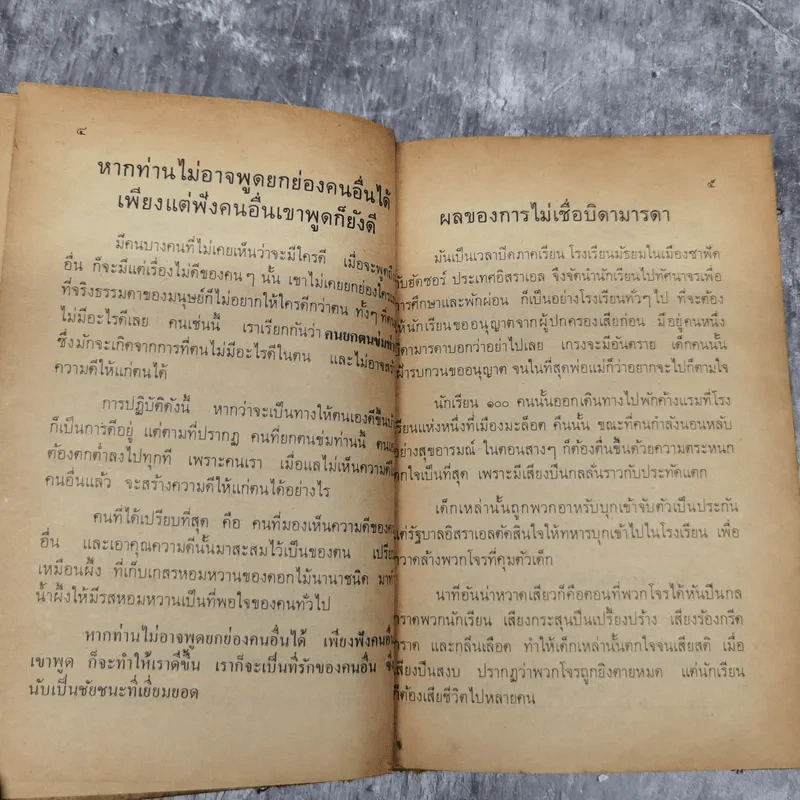 ๔
หากท่านไม่อาจพูดยกย่องคนอื่นได้
เพียงแต่ฟังคนอื่นเขาพูดก็ยังดี
มีคนบางคนที่ไม่เคยเห็นว่าจะมีใครดี เมื่อจะพูดถึง
อื่น ก็จะมีแต่เรื่องไม่ดีของคนๆ นั้น เขาไม่เคยยกย่องใคร
ที่จริงธรรมดาของมนุษย์ก็ไม่อยากให้ใครดีกว่าตน ทั้งๆ ที่ตน
ไม่มีอะไรดีเลย คนเช่นนี้ เราเรียกกันว่า คนยกตนข่มท่าน
ซึ่งมักจะเกิดจากการที่ตนไม่มีอะไรดีในตน และไม่อาจสร้
ความดีให้แก่ตนได้
การปฏิบัติดังนี้ หากว่าจะเป็นทางให้ตนเองดีขึ้น
ก็เป็นการดีอยู่ แต่ตามที่ปรากฏ คนที่ยกตนข่มท่านนี้
ต้องตกต่ำลงไปทุกที เพราะคนเรา เมื่อแลไม่เห็นความดี
คนอื่นแล้ว จะสร้างความดีให้แก่ตนได้อย่างไร
คนที่ได้เปรียบที่สุด คือ คนที่มองเห็นความดีของค
อื่น และเอาคุณความดีนั้นมาสะสมไว้เป็นของตน เปรีย
เหมือนผึ้ง ที่เก็บเกสรหอมหวานของดอกไม้นานาชนิด มาท
น้ำผึ้งให้มีรสหอมหวานเป็นที่พอใจของคนทั่วไป
หากท่านไม่อาจพูดยกย่องคนอื่นได้ เพียงฟังคนอื่น
เขาพูด ก็จะทำให้เราดีขึ้น เราก็จะเป็นที่รักของคนอื่น
นับเป็นชัยชนะที่เยี่ยมยอด
๕
ผลของการไม่เชื่อบิดามารดา
มันเป็นเวลาปิดภาคเรียน โรงเรียนมัธยมในเมืองซาฟัด
กับฮัดซอร์ ประเทศอิสราเอล จึงจัดนำนักเรียนไปทัศนาจรเพื่อ
การศึกษาและพักผ่อน ก็เป็นอย่างโรงเรียนทั่วๆ ไป ที่จะต้อง
ให้นักเรียนขออนุญาตจากผู้ปกครองเสียก่อน มีอยู่คนหนึ่ง
บิดามารดาบอกว่าอย่าไปเลย เกรงจะมีอันตราย เด็กคนนั้น
เฝ้ารบกวนขออนุญาต จนในที่สุดพ่อแม่ก็ว่าอยากจะไปก็ตามใจ
นักเรียน ๑๐๐ คนนั้นออกเดินทางไปพักค้างแรมที่โรง
เรียนแห่งหนึ่งที่เมืองมะล็อต คืนนั้น ขณะที่คนกำลังนอนหลับ
อย่างสุขอารมณ์ ในตอนสางๆ ก็ต้องตื่นขึ้นด้วยความตระหนก
ตกใจเป็นที่สุด เพราะมีเสียงปืนกลลั่นราวกับประทัดแตก
เด็กเหล่านั้นถูกพวกอาหรับบุกเข้าจับตัวเป็นประกัน
แต่รัฐบาลอิสราเอลตัดสินใจให้ทหารบุกเข้าไปในโรงเรียน เพื่อ
กวาดล้างพวกโจรที่คุมตัวเด็ก
นาทีอันน่าหวาดเสียวก็คือตอนที่พวกโจรได้หันปืนกล
กราดพวกนักเรียน เสียงกระสุนปืนเปรี้ยงปร้าง เสียงร้องกรีด
กราด และกลิ่นเลือด ทำให้เด็กเหล่านั้นตกใจจนเสียสติ เมื่อ
เสียงปืนสงบ ปรากฏว่าพวกโจรถูกยิงตายหมด แต่นักเรียน
ก็ต้องเสียชีวิตไปหลายคน